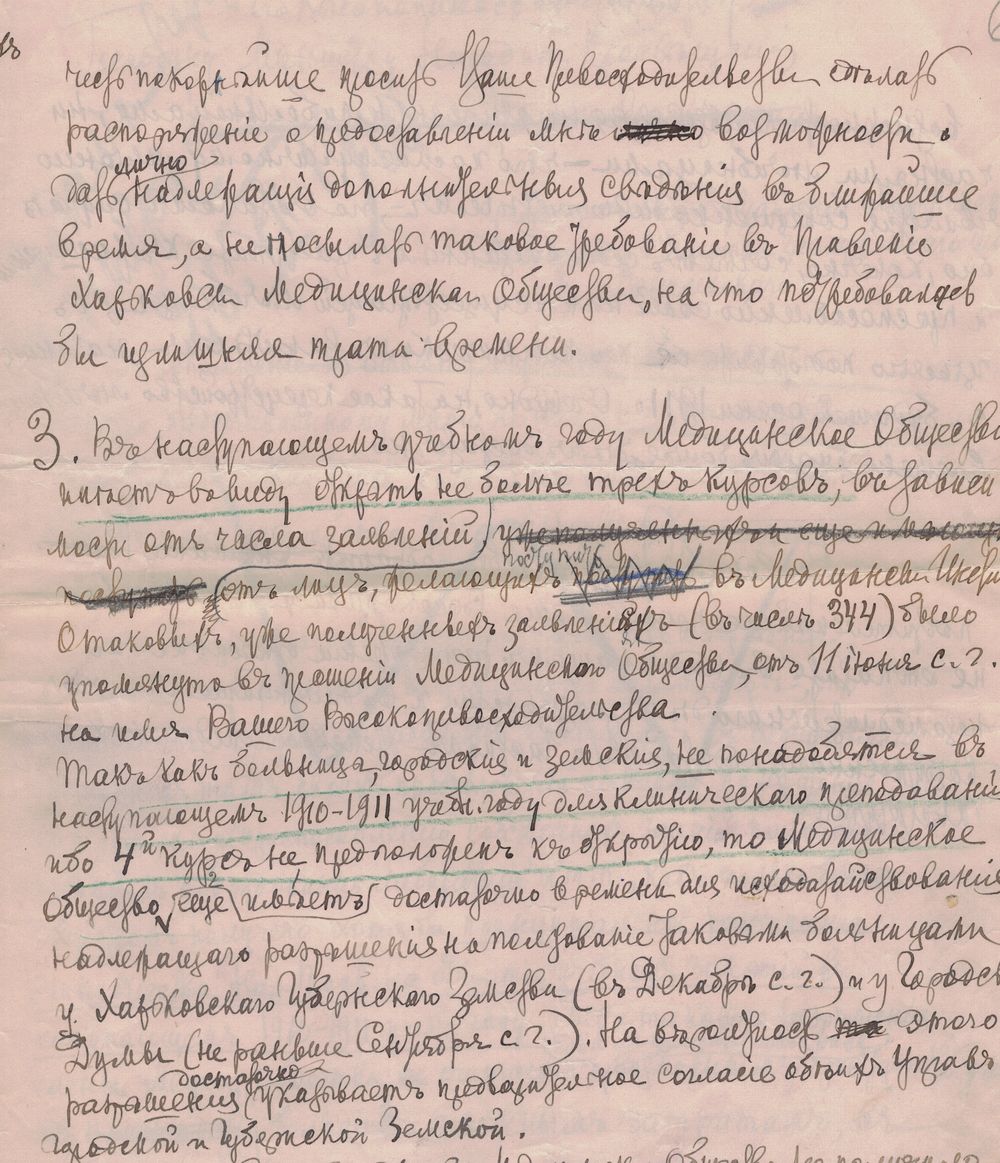 честь покорнѣйше просить Ваше Превосходительство сдѣлать
распоряженіе о предоставленіи мнѣ возможности
лично
дать надлежащія дополнительныя свѣдѣнія въ ближайшее
время, а не посылать таковое требованіе въ Правленіе
Харьковск Медицинскаг Общества, на что потребовалась
бы излишняя трата времени.
3. Въ наступающемъ учебномъ году Медицинское Общество
имѣетъ въ виду открыть не болѣе трехъ курсовъ, въ зависи
мости отъ числа заявленій уже полученн и еще имѣющ
поступить
поступить отъ лицъ, желающихъ въ Медицинск Инст
О таковыхъ, уже полученныхъ заявленіяхъ (въ числѣ 344) было
упомянуто въ прошеніи Медицинскаго Общества, отъ 11 іюня с. г.
на имя Вашего Высокопревосходительства
Такъ какъ больница, городскія и земскія, не понадобятся въ
наступающемъ 1910-1911 учебн. году для клиническаго преподаванія
ибо 4й курсъ не предположенъ къ открытію, то Медицинское
Общество еще имѣетъ достаточно времени для исходатайствованія
надлежащаго разрѣшенія на пользованіе таковыми больницами
у Харьковскаго Губернскаго Земства (въ Декабрѣ с. г.) и у Городск
Думы (не раньше Сентября с. г.). На вѣроятность этого
достаточно
разрѣшенія указываетъ предварительное согласіе обѣихъ Управъ
городской и Губернской Земской.